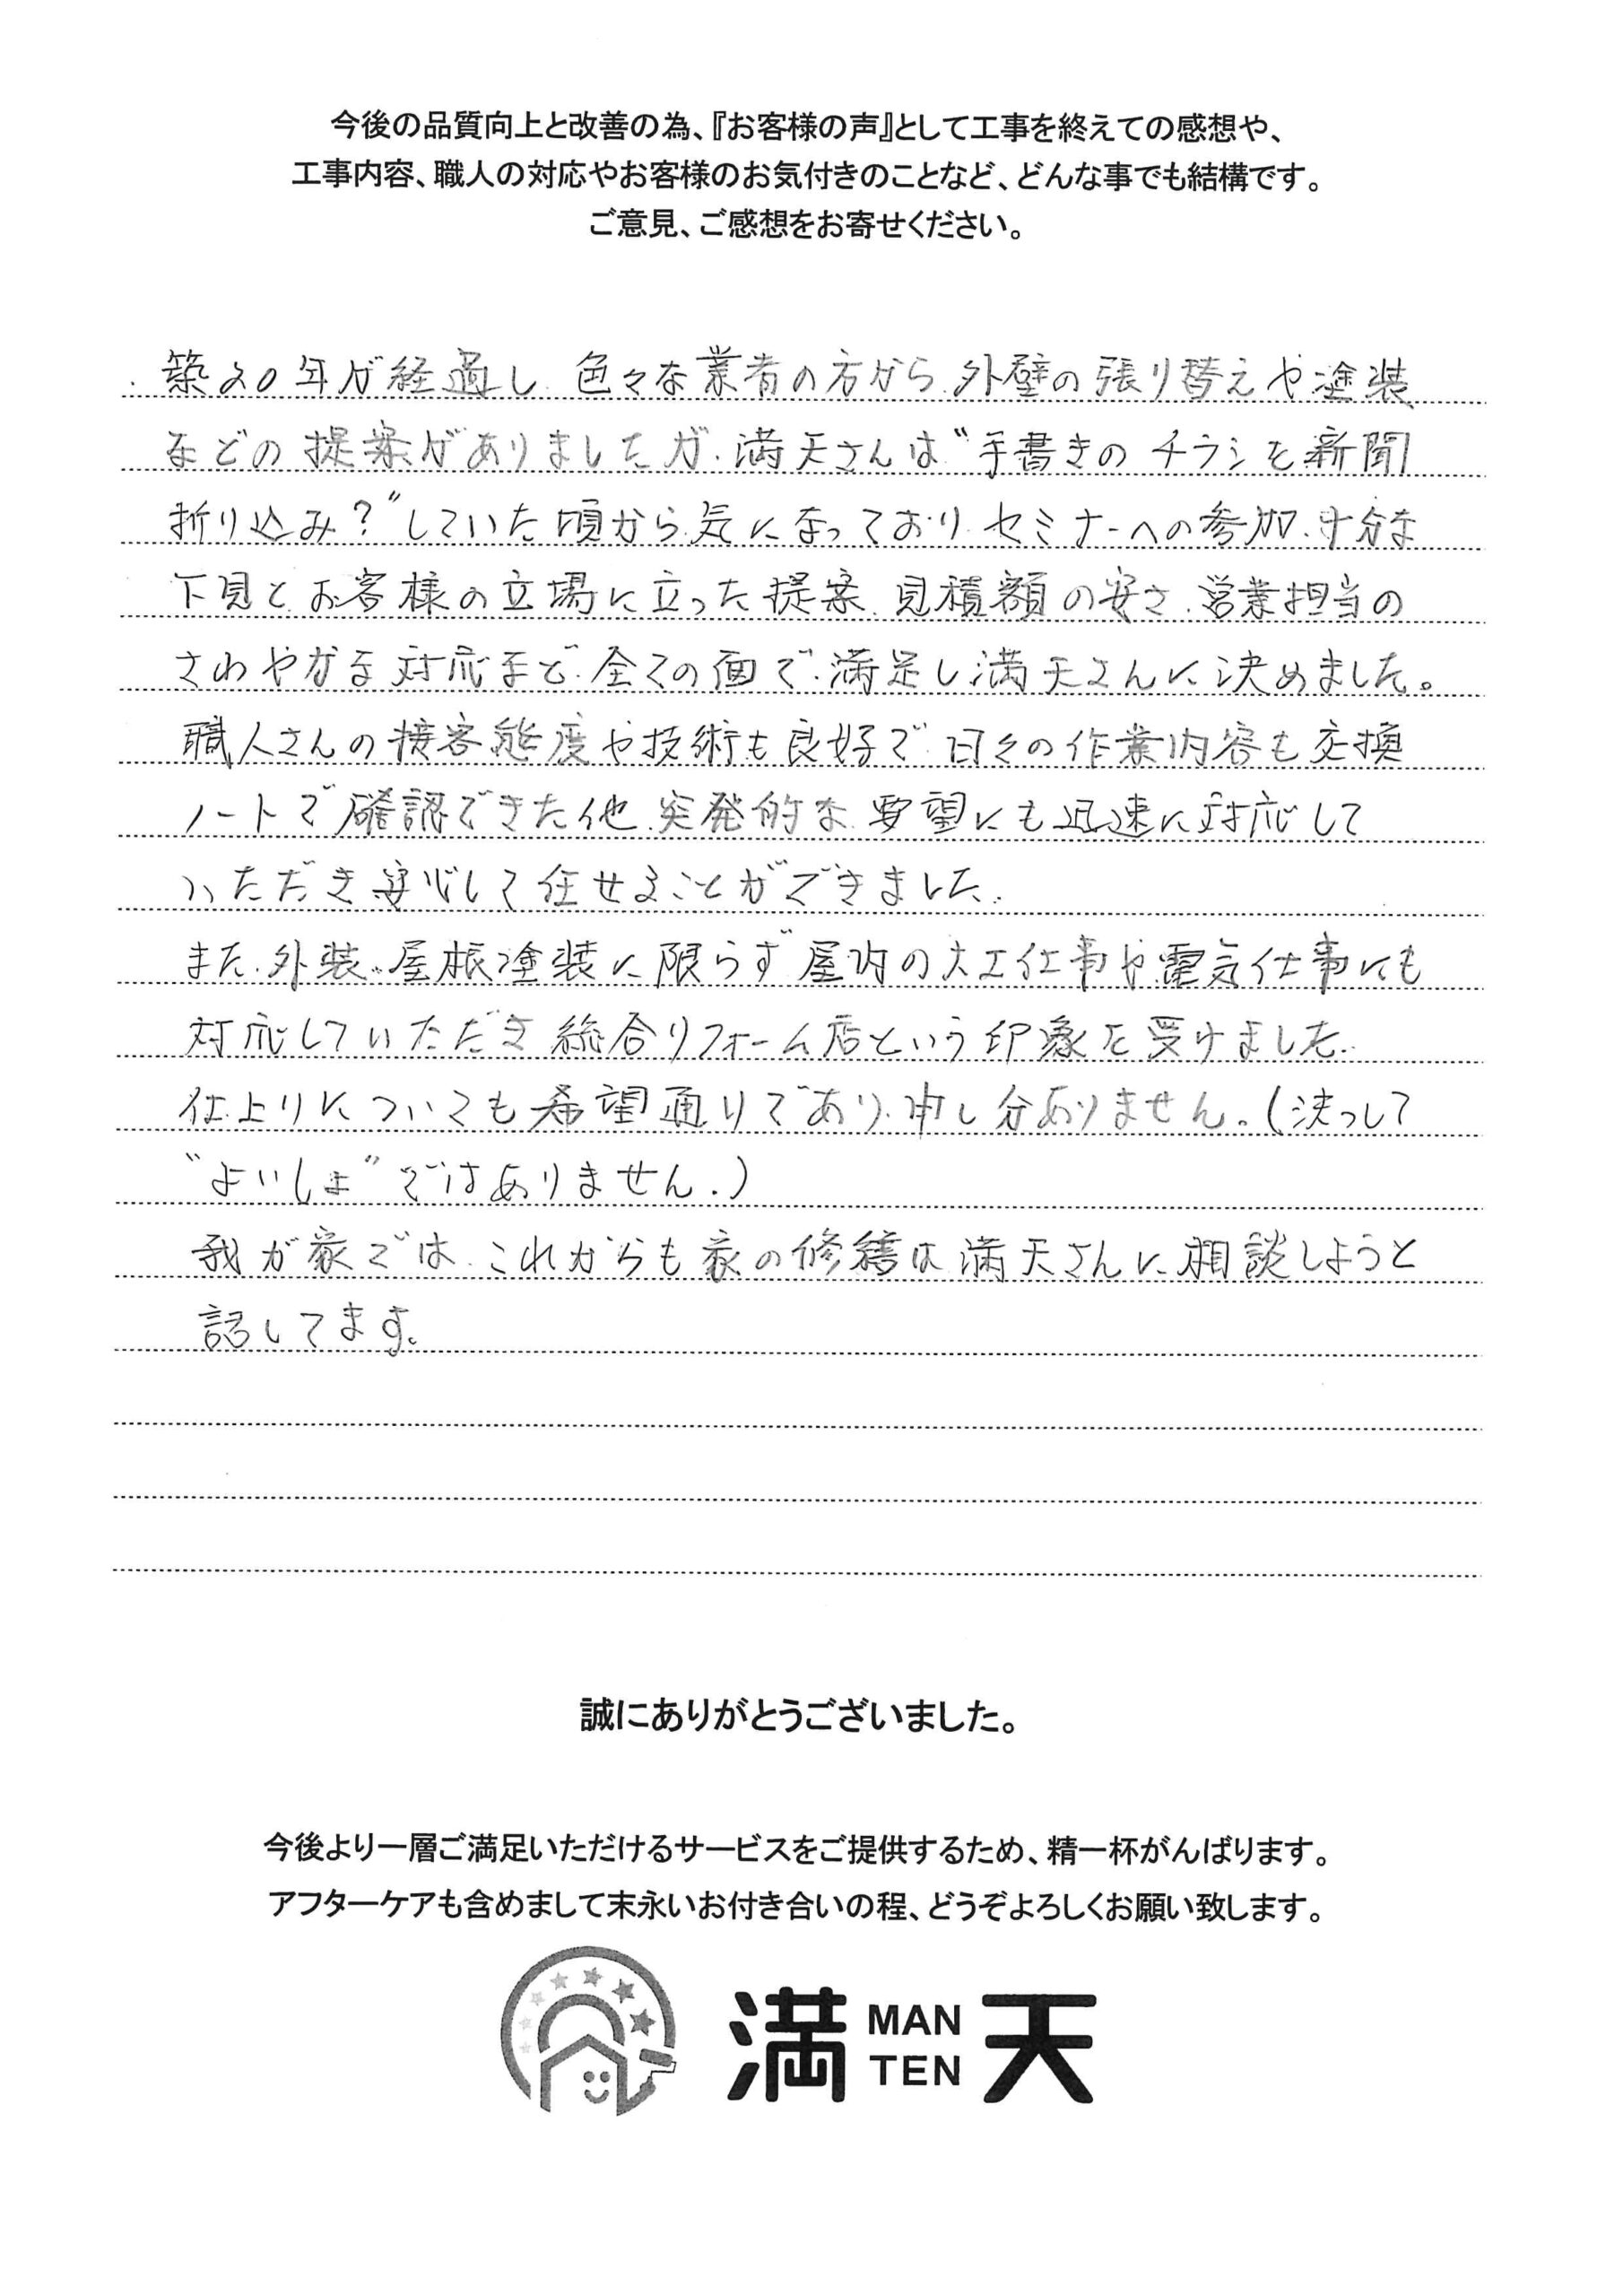 今後の品質向上と改善の為、『お客様の声』として工事を終えての感想や、
工事内容、職人の対応やお客様のお気付きのことなど、どんな事でも結構です。
ご意見、ご感想をお寄せください。
築20年が経過し、色々な業者の方から、外壁の張り替えや塗装
などの提案がありましたが、満天さんは“手書きのチラシを新聞
折り込み?”していた頃から気になっており、セミナーへの参加、十分な
下見と、お客様の立場に立った提案、見積額の安さ、営業担当の
さわやかな対応など、全ての面で、満足し満天さんに決めました。
職人さんの接客態度や技術も良好で、日々の作業内容も交換
ノートで確認できた他、突発的な要望にも迅速に対応して
いただき安心して任せることができました。
また、外装、屋根塗装に限らず屋内の大工仕事や電気仕事にも
対応していただき総合リフォーム店という印象を受けました。
仕上りについても希望通りであり、申し分ありません。(決っして
“よいしょ”ではありません。)
我が家では、これからも家の修繕は満天さんに相談しようと
話してます。
誠にありがとうございました。
今後より一層ご満足いただけるサービスをご提供するため、精一杯がんばります。
アフターケアも含めまして末永いお付き合いの程、どうぞよろしくお願い致します。
満天 MAN TEN